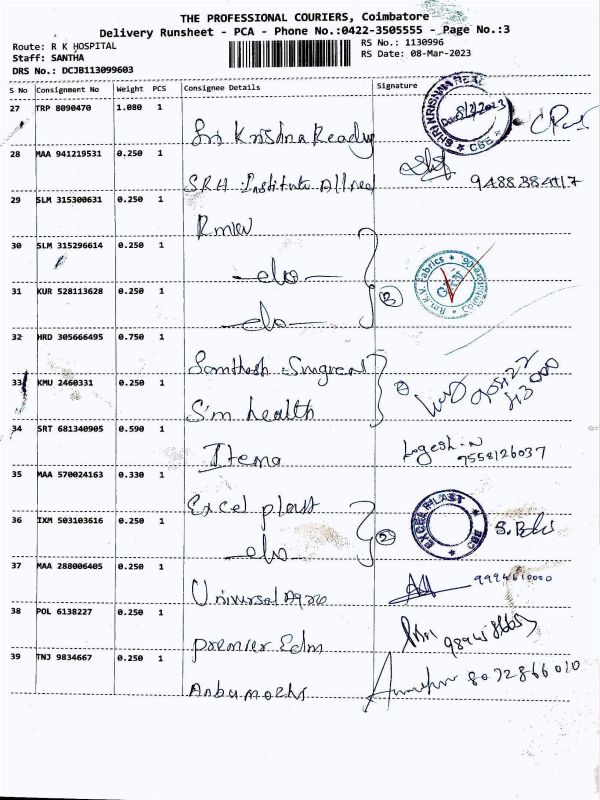 THE PROFESSIONAL COURIERS, Coimbatore
Delivery Runsheet - PCA - Phone No.:0422-3505555 - Page No.:3
Route: R K HOSPITAL
Staff: SANTHA
DRS No.: DCJB113099603
RS No.: 1130996
RS Date: 08-Mar-2023
S No Consignment No Weight PCS Consignee Details Signature
27 TRP 8090470 1.080 1
Sri Krishna Ready
SHRI KRISHNA REAL CBE
28 MAA 941219531 0.250 1
SRH Institute
29 SLM 315300631 0.250 1
30 SLM 315296614 0.250 1
-do-
R.m.K.V. Fabrics
31 KUR 528113628 0.250 1
-do-
3
32 HRD 305666495 0.750 1
Santhosh Surgical
33 KMU 2460331 0.250 1
S'm health
34 SRT 681340905 0.590 1
Itema
Logesh.N
7558126037
35 MAA 570024163 0.330 1
Excel plast
EXCEL PLAST
36 IXM 503103616 0.250 1
-do-
2
37 MAA 288006405 0.250 1
Universal Agro
38 POL 6138227 0.250 1
premier Edm
39 TNJ 9834667 0.250 1
8072866010